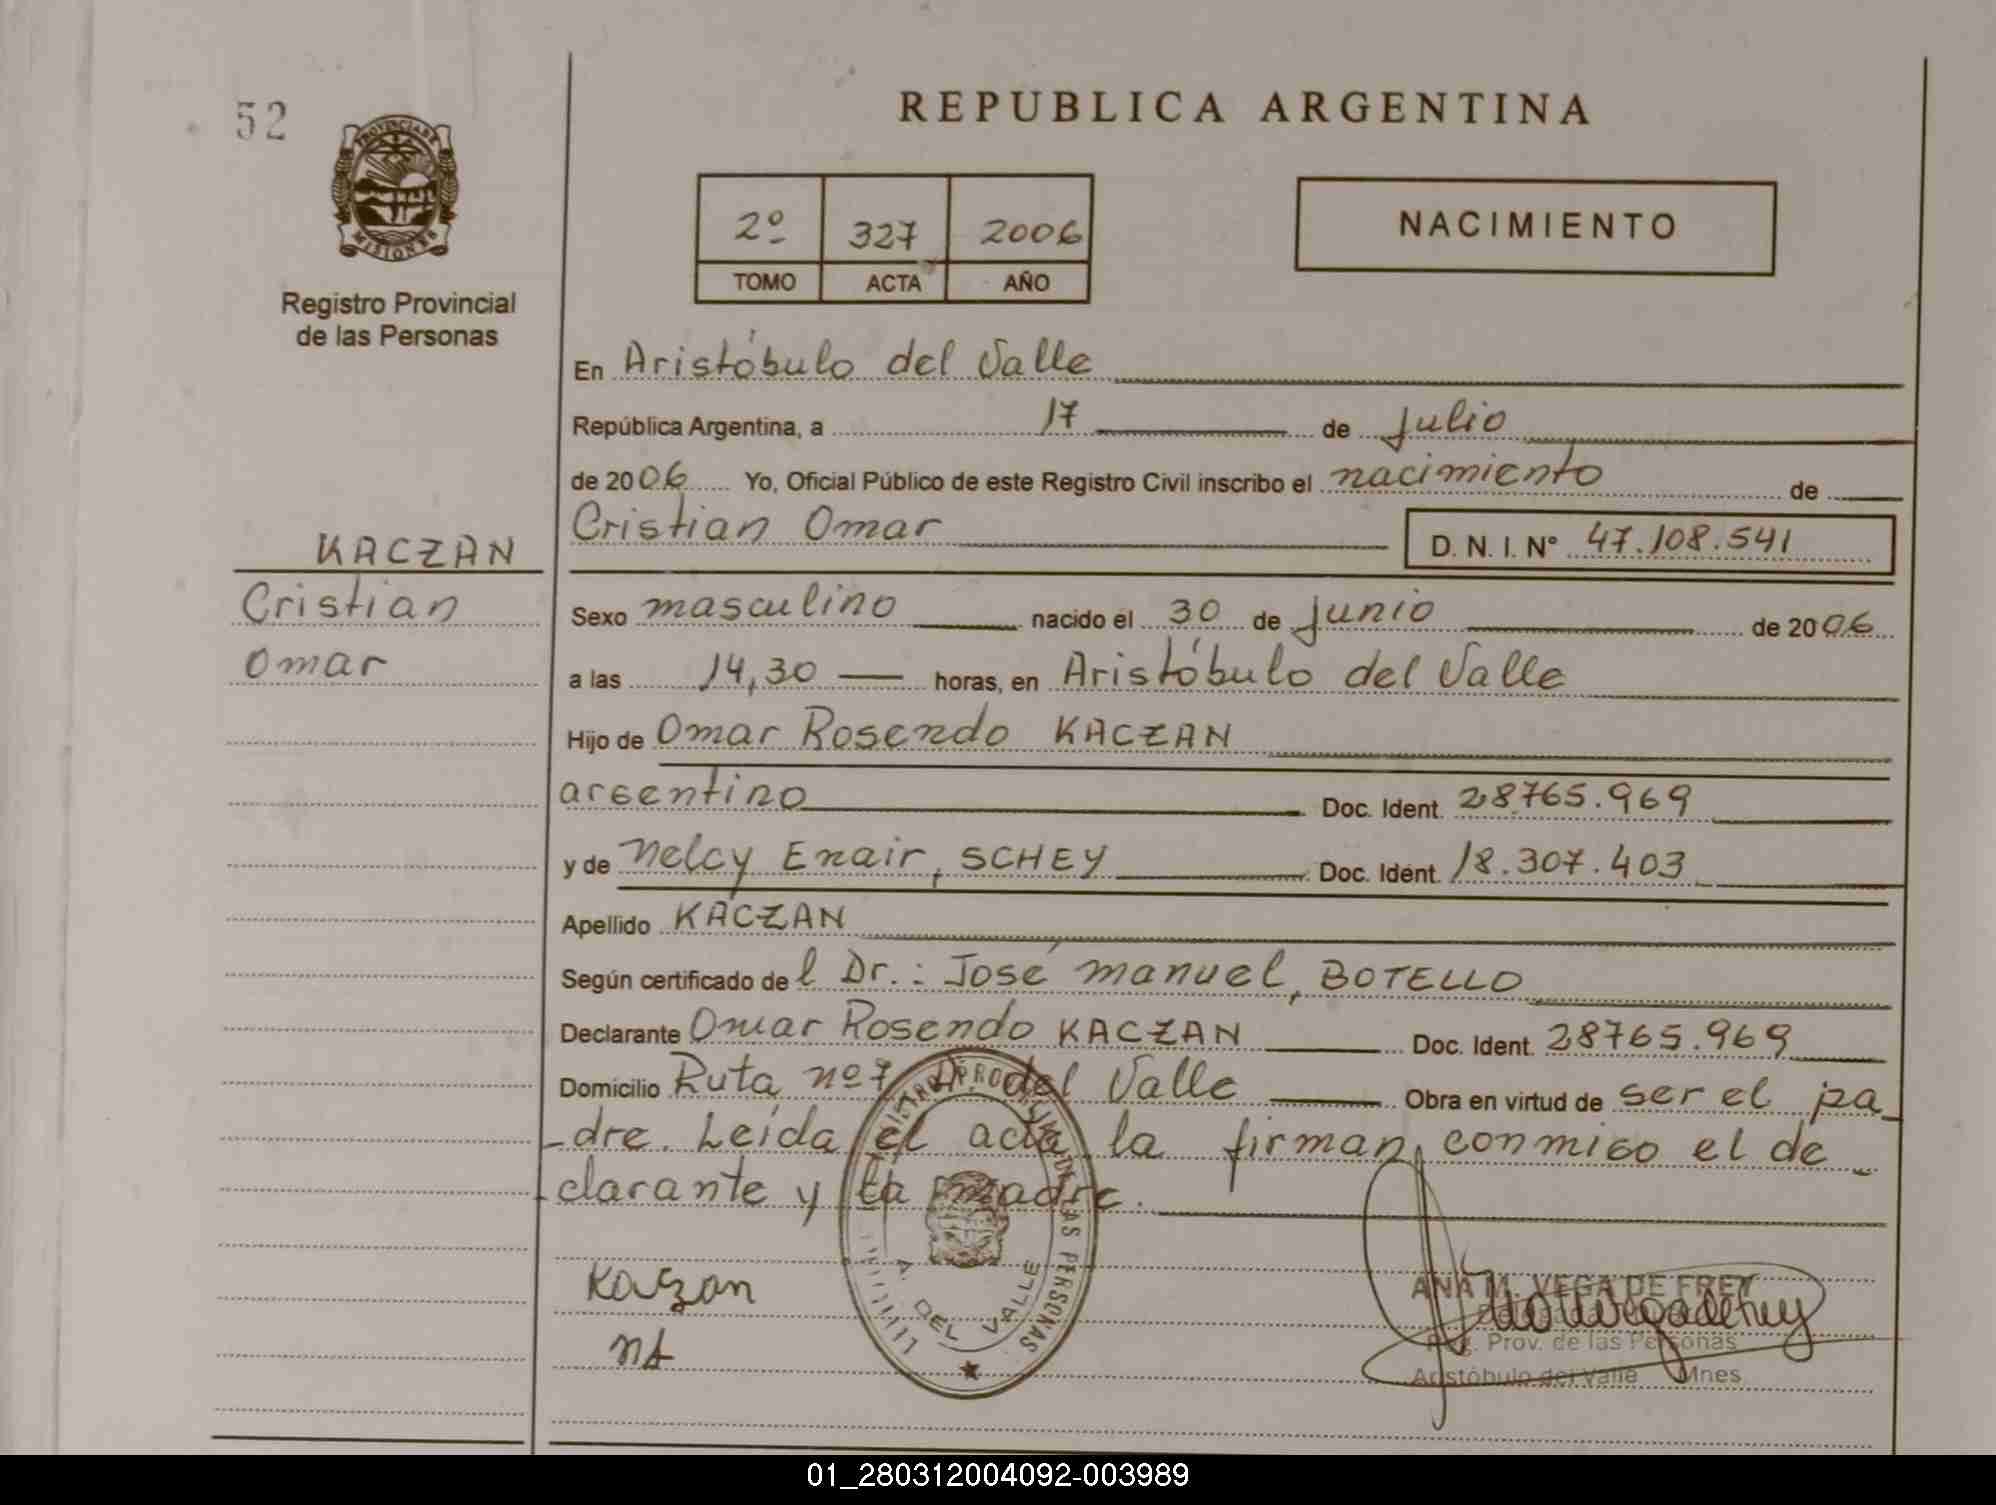 52
PROVINCIA DE
MISIONES
Registro Provincial
de las Personas
REPUBLICA ARGENTINA
2º 327 2006
TOMO ACTA AÑO
NACIMIENTO
En Aristóbulo del Valle
República Argentina, a 17 de Julio
de 2006 Yo, Oficial Público de este Registro Civil inscribo el nacimiento de
Cristian Omar D. N. I. Nº 47.108.541
KACZAN
Cristian
Omar
Sexo masculino nacido el 30 de junio de 2006
a las 14,30 horas, en Aristóbulo del Valle
Hijo de Omar Rosendo KACZAN
argentino Doc. Ident. 28765.969
y de Nelcy Enair, SCHEY Doc. Ident. 18.307.403
Apellido KACZAN
Según certificado de l Dr.: José Manuel, BOTELLO
Declarante Omar Rosendo KACZAN Doc. Ident. 28765.969
Domicilio Ruta nº 7 A. del Valle Obra en virtud de ser el pa_
_dre. Leída el acta, la firman conmigo el de_
_clarante y la madre.
DE LAS PERSONAS
A. DEL VALLE
Kaczan
ANA M. VEGA DE FREY
Reg. Prov. de las Personas
Aristóbulo del Valle Mnes
01_280312004092-003989